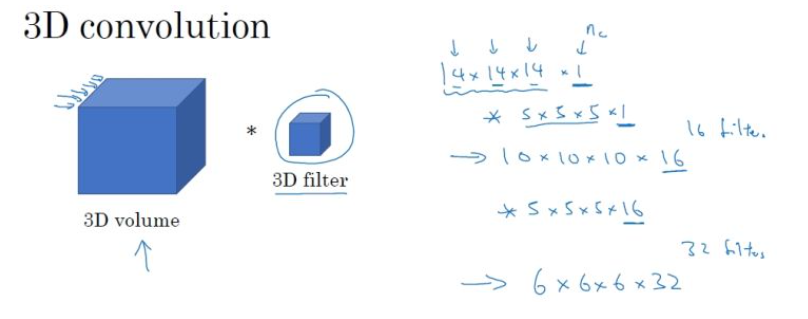 3D convolution
3D volume
*
3D filter
n_c
14 × 14 × 14 × 1
* 5 × 5 × 5 × 1
16 filte.
→ 10 × 10 × 10 × 16
* 5 × 5 × 5 × 16
32 filters
→ 6 × 6 × 6 × 32